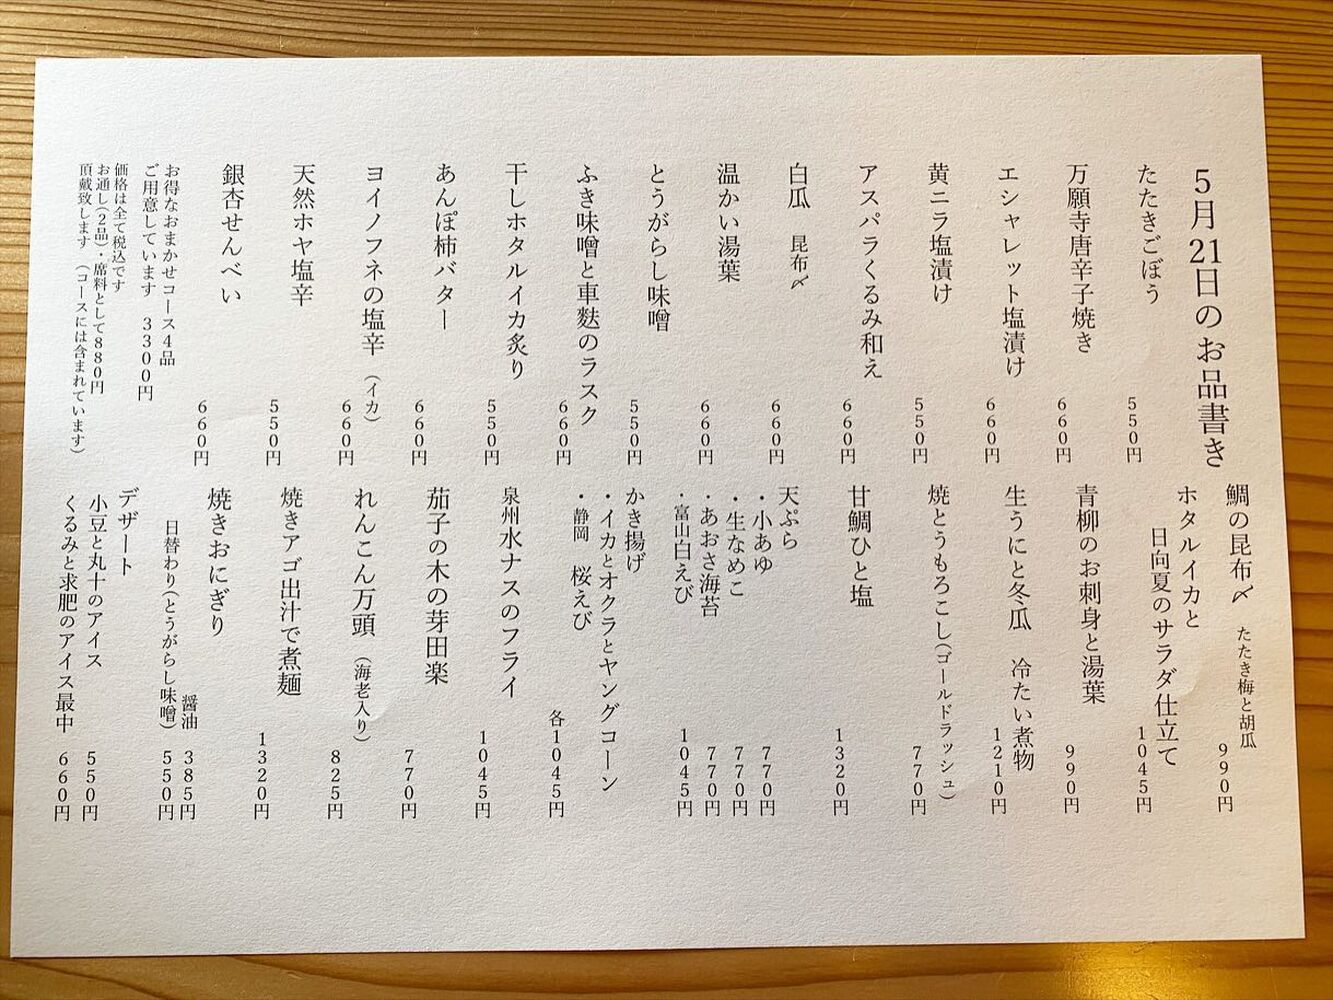 5月21日のお品書き
たたきごぼう
550円
万願寺唐辛子焼き
660円
エシャレット塩漬け
660円
黄ニラ塩漬け
550円
アスパラくるみ和え
660円
白瓜 昆布〆
660円
温かい湯葉
660円
とうがらし味噌
550円
ふき味噌と車麩のラスク
660円
干しホタルイカ炙り
550円
あんぽ柿バター
660円
ヨイノフネの塩辛 (イカ)
660円
天然ホヤ塩辛
550円
銀杏せんべい
660円
お得なおまかせコース4品
ご用意しています 3300円
価格は全て税込です
お通し(2品)・席料として880円
頂戴致します (コースには含まれています)
鯛の昆布〆 たたき梅と胡瓜
990円
ホタルイカと
日向夏のサラダ仕立て
1045円
青柳のお刺身と湯葉
990円
生うにと冬瓜 冷たい煮物
1210円
焼とうもろこし(ゴールドラッシュ)
770円
甘鯛ひと塩
1320円
天ぷら
・小あゆ 770円
・生なめこ 770円
・あおさ海苔 770円
・富山白えび 1045円
かき揚げ
・イカとオクラとヤングコーン
・静岡 桜えび
各1045円
泉州水ナスのフライ
1045円
茄子の木の芽田楽
770円
れんこん万頭 (海老入り)
825円
焼きアゴ出汁で煮麺
1320円
焼きおにぎり
醤油 385円
日替わり(とうがらし味噌) 550円
デザート
小豆と丸十のアイス 550円
くるみと求肥のアイス最中 660円